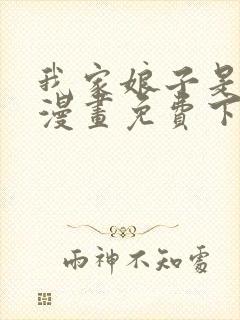 我家娘子是
漫畫免費下
雨神不知處